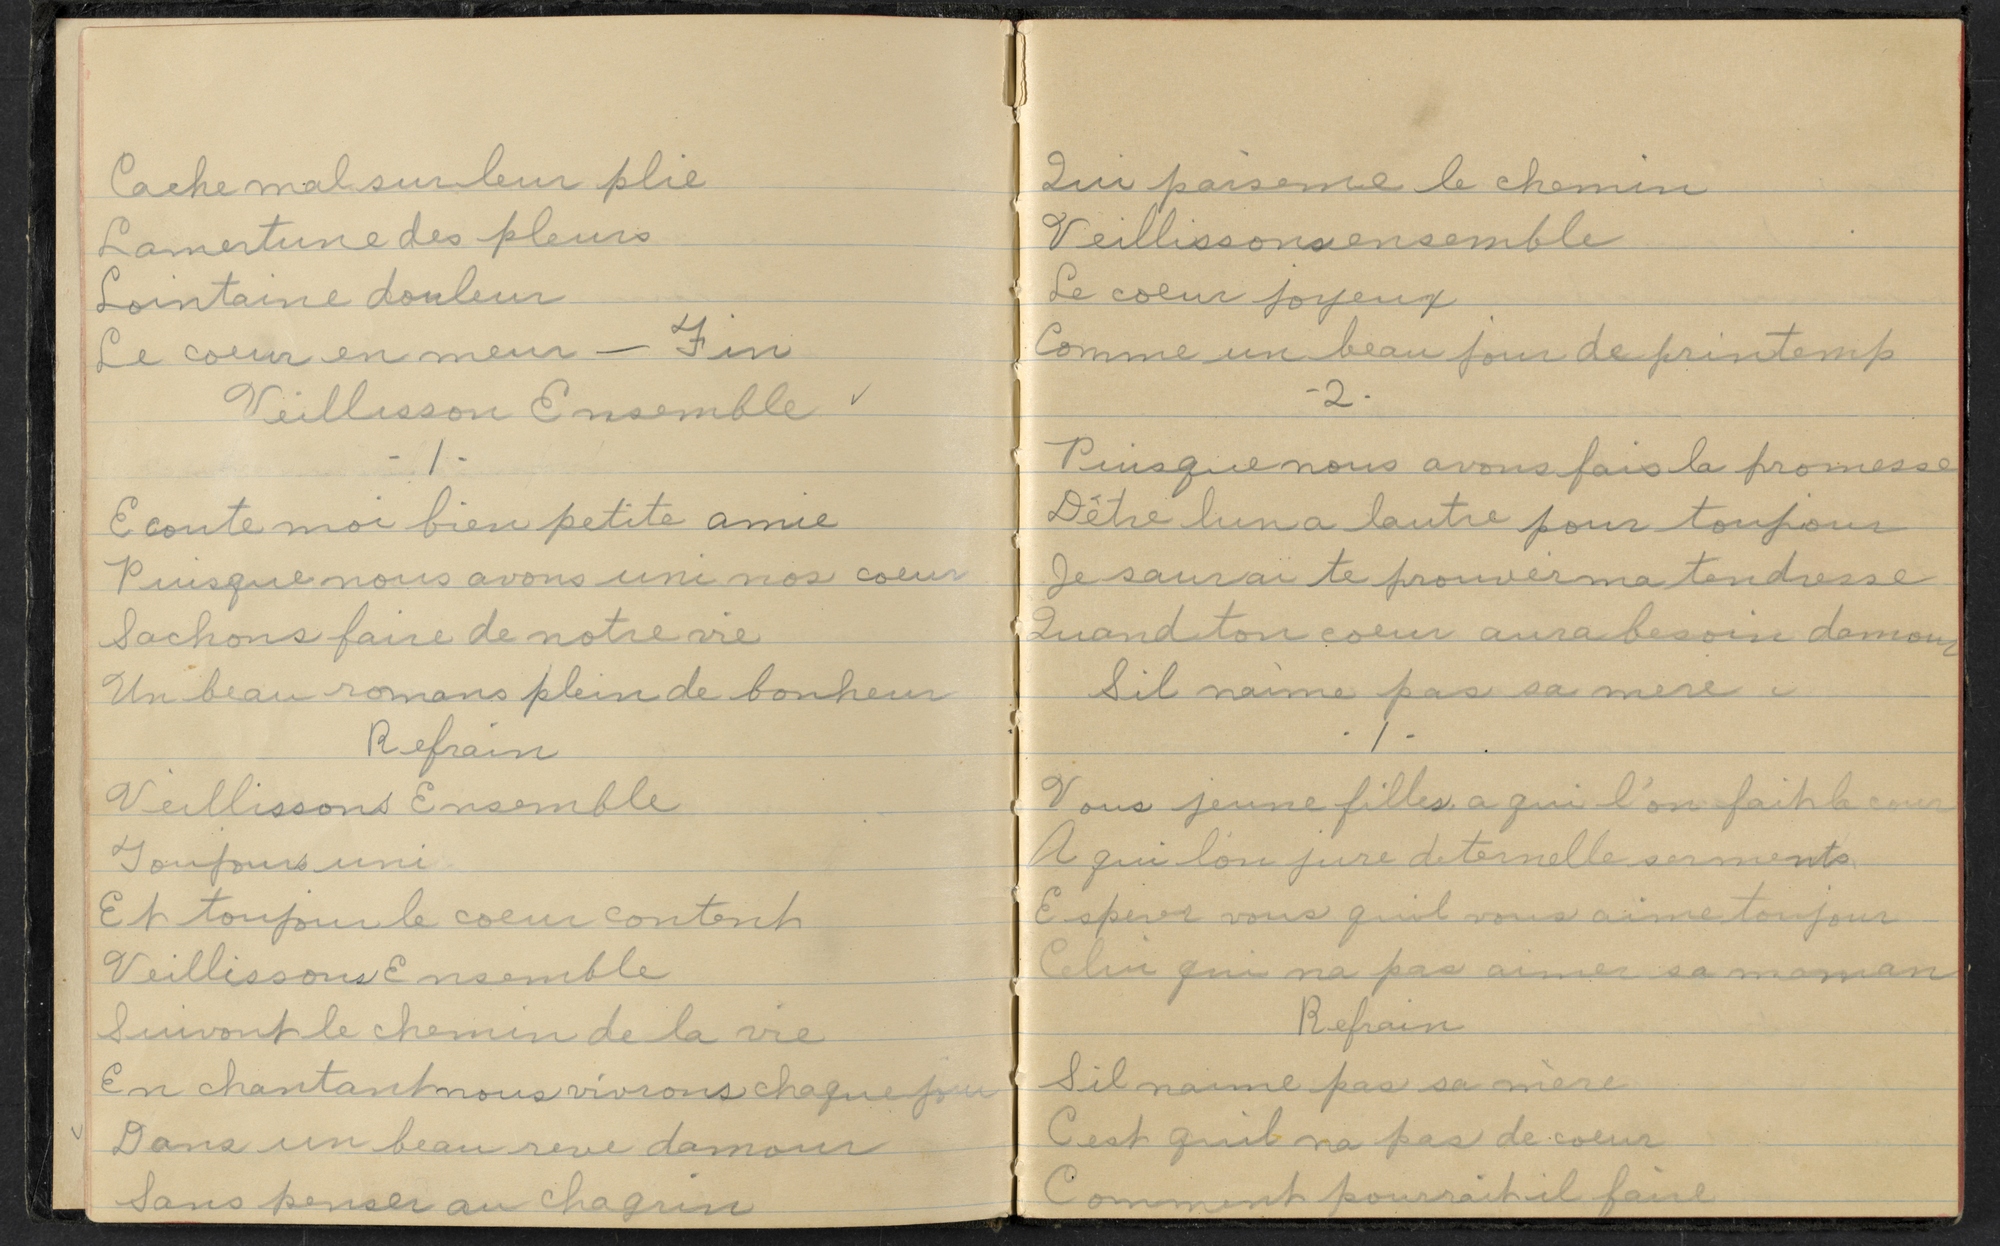 Cache mal sur leur plie
Lamertune des pleurs
Lointaine douleur
Le coeur en meur — Fin
Veillisson Ensemble
- 1 -
Ecoute moi bien petite amie
Puisque nous avons uni nos coeur
Sachons faire de notre vie
Un beau romans plein de bonheur
Refrain
Veillissons Ensemble
Toujours uni
Et toujour le coeur content
Veillissons Ensemble
Suivont le chemin de la vie
En chantant nous vivrons chaque jour
Dans un beau reve damour
Sans penser au chagrin
Qui parseme le chemin
Veillissons ensemble
Le coeur joyeux
Comme un beau jour de printemp
- 2 -
Puisque nous avons fais la promesse
Dêtre lun a lautre pour toujour
Je saurai te prouver ma tendresse
Quand ton coeur aura besoin damour
Sil naime pas sa mere
- 1 -
Vous jeune filles a qui l'on fait la cour
A qui lon jure deternelle serments
Esperer vous quil vous aime toujour
Celui qui na pas aimer sa maman
Refrain
Sil naime pas sa mère
Cest quil na pas de coeur
Comment pourrait il faire